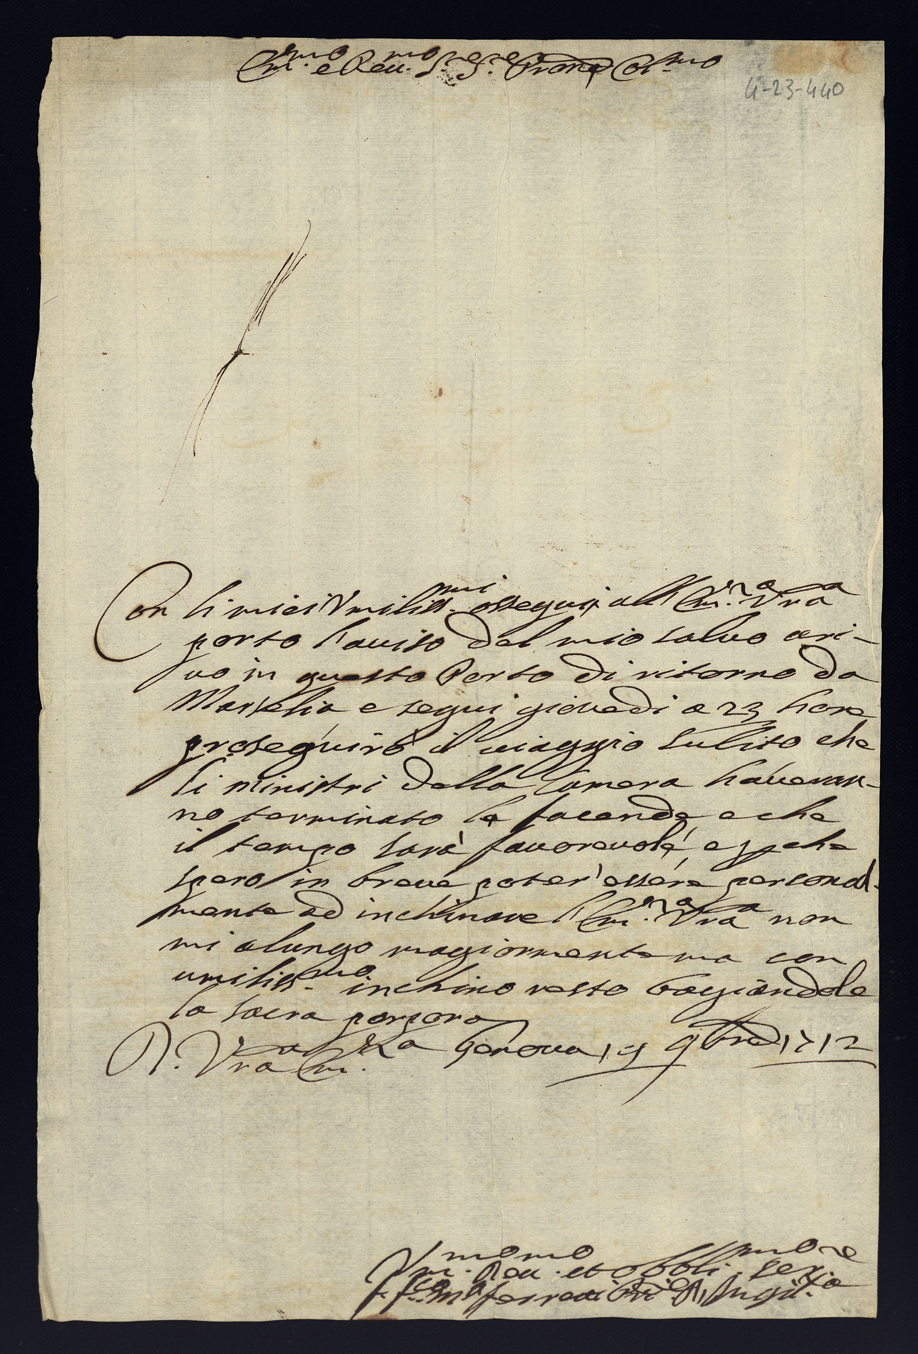 Em.mo e Reu.mo S.re S.re Prone Col.mo
4-23-440
Con li miei Vmiliss.mi ossequij all Em.za Vra
porto l'auiso del mio saluo ari-
uo in questo Porto di ritorno da
Marselia e segui giouedi a 23 hore
proseguirò il uiaggio subito che
li ministri della Camera haueran-
no terminato le facende e che
il tempo sarà fauoreuole, e perche
spero in breue poter' essere personal-
mente ad inchinare l Em.za Vra non
mi alungo magiormente ma con
umiliss.mo inchino resto bagiandole
la sacra porpora
D. Vra Em.za Genoua 19 9bre 1712
Vm.mo Reu.mo et obbli.mo Ser.re
f. fco Ma ferretti